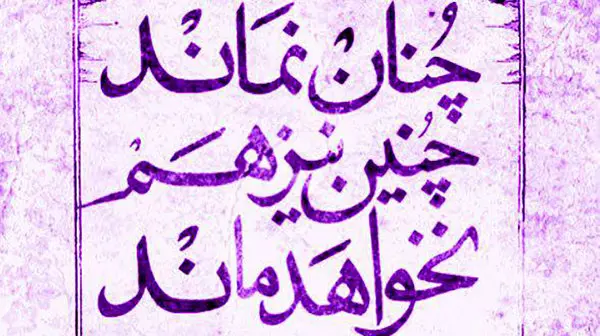 چُنان نمَانْد
چُنین نیز هَم
نخواهَد مانْد